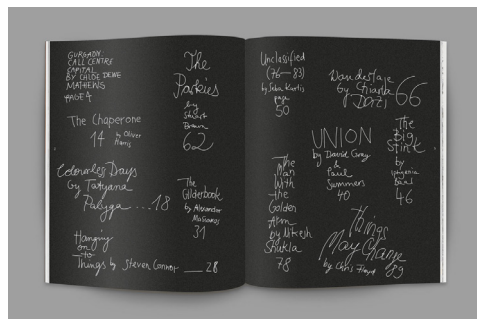 GURGAON:
CALL CENTRE
CAPITAL
BY CHLOE DEWE
MATHEWS
PAGE 4
The Chaperone
14 by Oliver
Harris
Colourless Days
by Tatyana
Palyga ....18
Hanging
on
to
Things by Steven Connor __ 28
The
Parkies
by
Stuart
Brown
62
The
Gilderbook
by Alexander
31
Unclassified
(76—83)
by Seba Kurtis
page
50
The
Man
With
the
Golden
Arm
by Nikesh
Shukla
78
by Chiara
66
UNION
by David Gray
&
Paul
Summers
40
The
Big
Stink
by
Iphgenia
Baal
46
Things
May Change
by Chris Floyd 89